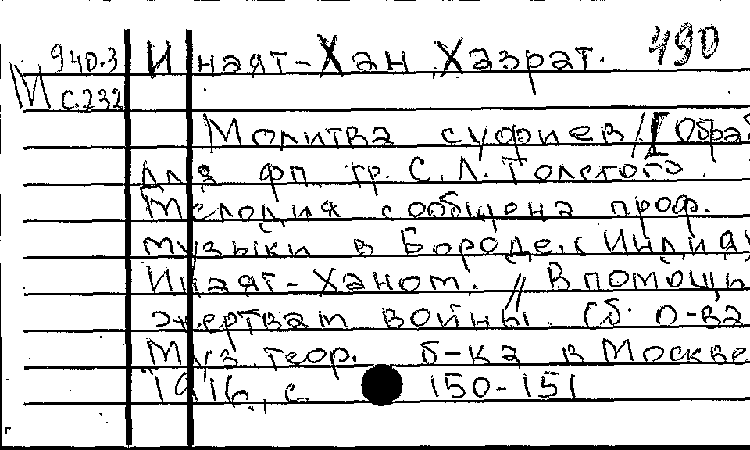 940.3 Инаят-Хан Хазрат. 490
М с.232
Молитва суфиев // Обраб
для фп тр. С. Л. Толстого.
Мелодия сообщена проф.
музыки в Бороде. (Индия)
Инаят-Ханом. // В помощь
жертвам войны. Сб. о-ва
Муз. теор. б-ка в Москве
1916, с. 150-151